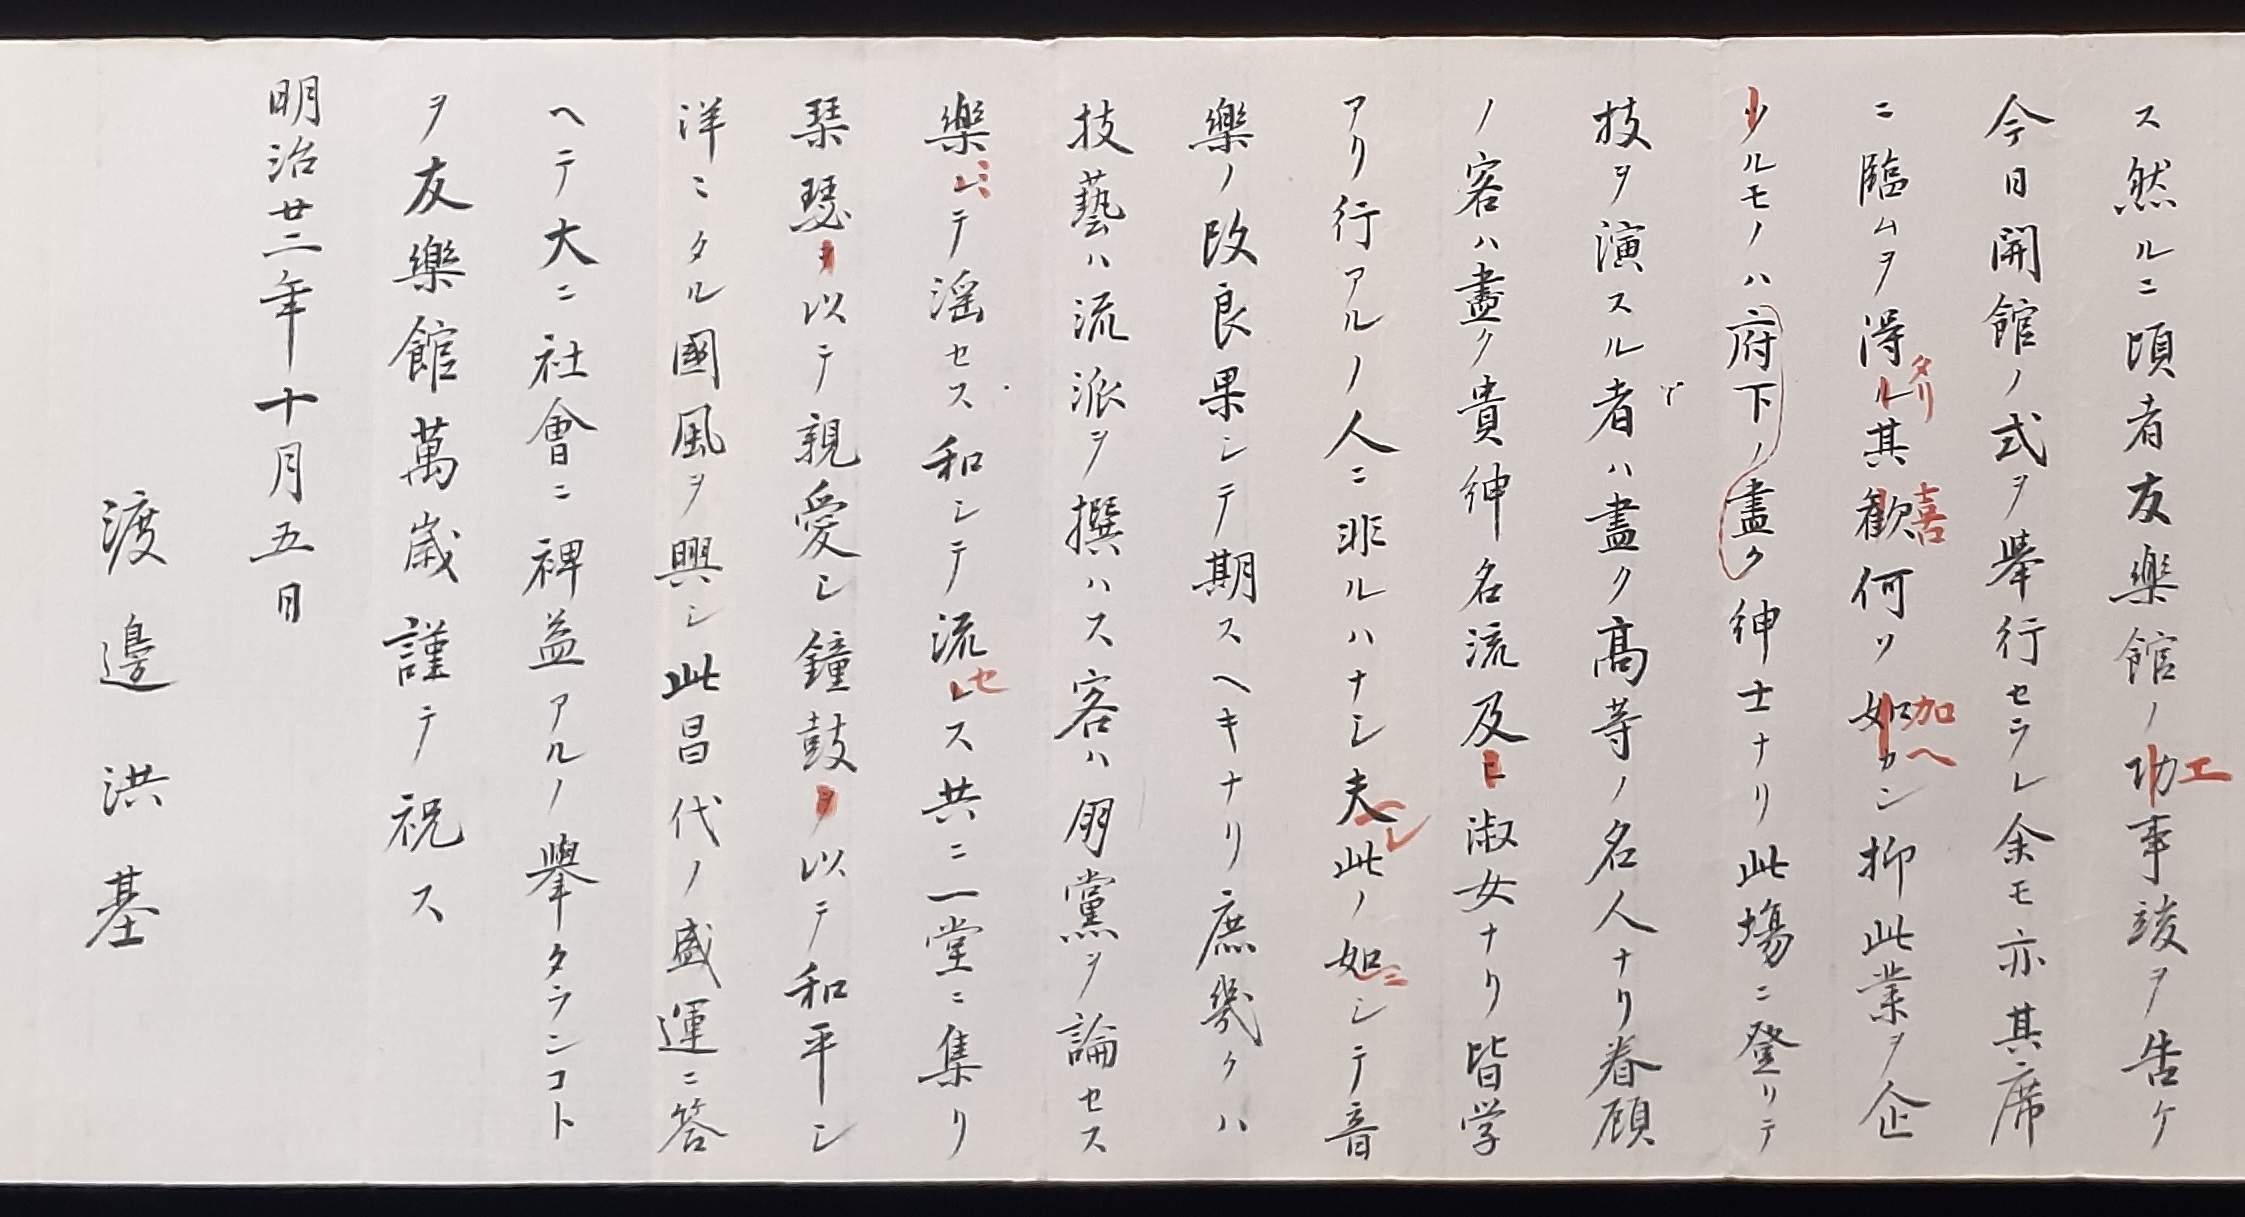 ス然ルニ頃者友樂館ノ功工事竣ヲ告ケ
今日開館ノ式ヲ舉行セラレ余モ亦其席
ニ臨ムヲ得ルタリ其歓喜何ソ如加ヘカン抑此業ヲ企
ツルモノハ府下ノ盡ク紳士ナリ此場ニ登リテ
技ヲ演スル者ハ盡ク高等ノ名人ナリ眷顧
ノ客ハ盡ク貴紳名流及ヒ淑女ナリ皆学
アリ行アルノ人ニ非ルハナシ夫レ此ノ如ニシテ音
樂ノ改良果シテ期スヘキナリ庶幾クハ
技藝ハ流派ヲ撰ハス客ハ朋黨ヲ論セス
樂レミテ淫セス和シテ流レセス共ニ一堂ニ集リ
琹瑟ヲ以テ親愛シ鐘鼓ヲ以テ和平シ
洋ミタル國風ヲ興シ此昌代ノ盛運ニ答
ヘテ大ニ社會ニ裨益アルノ擧タランコト
ヲ友樂館萬歳謹テ祝ス
明治廿二年十月五日
渡邉洪基